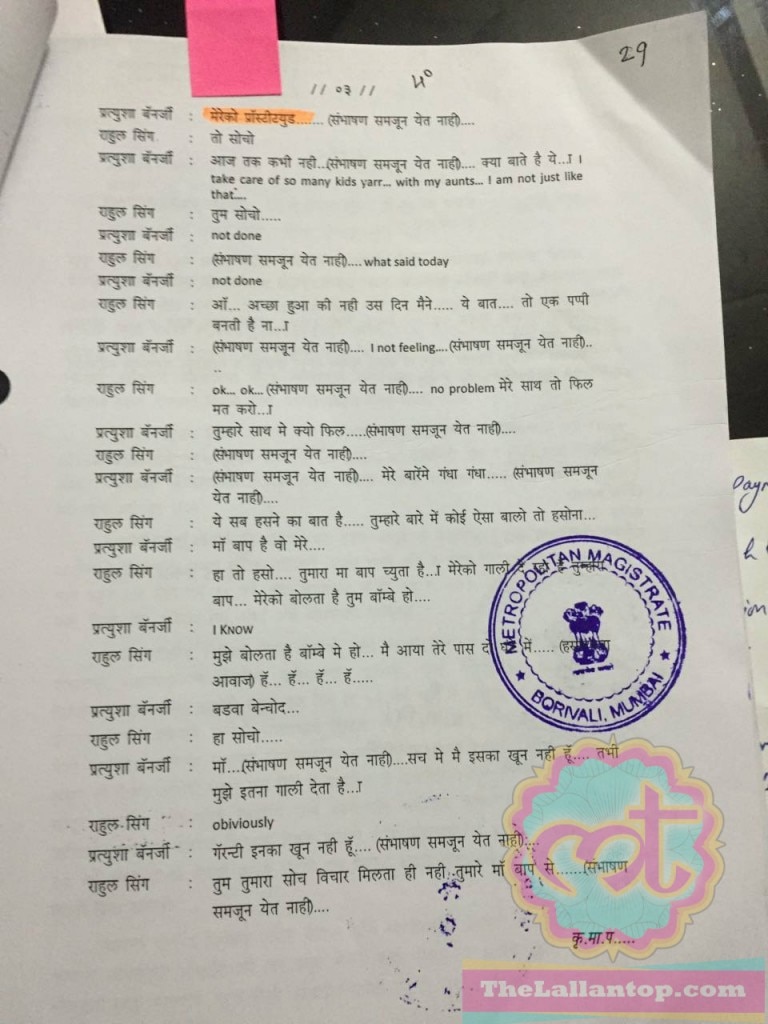 29
// ०३ //
प्रत्युशा बॅनर्जी : मेरेको प्रॉस्टीटयुड....... (संभाषण समजून येत नाही)....
राहुल सिंग : तो सोचो
प्रत्युशा बॅनर्जी : आज तक कभी नही...(संभाषण समजून येत नाही).... क्या बाते है ये...ा I
take care of so many kids yarr... with my aunts... I am not just like
that....
राहुल सिंग : तुम सोचो.....
प्रत्युशा बॅनर्जी : not done
राहुल सिंग : (संभाषण समजून येत नाही).... what said today
प्रत्युशा बॅनर्जी : not done
राहुल सिंग : ऑ... अच्छा हुआ की नही उस दिन मैने..... ये बात.... तो एक पप्पी
बनती है ना...ा
प्रत्युशा बॅनर्जी : (संभाषण समजून येत नाही).... I not feeling....(संभाषण समजून येत नाही)..
..
राहुल सिंग : ok... ok... (संभाषण समजून येत नाही).... no problem मेरे साथ तो फिल
मत करो...ा
प्रत्युशा बॅनर्जी : तुम्हारे साथ मे क्यो फिल.....(संभाषण समजून येत नाही)....
राहुल सिंग : (संभाषण समजून येत नाही)....
प्रत्युशा बॅनर्जी : (संभाषण समजून येत नाही).... मेरे बारेंमे गंधा गंधा..... (संभाषण समजून
येत नाही)....
राहुल सिंग : ये सब हसने का बात है..... तुम्हारे बारे में कोई ऐसा बालो तो हसोना...
प्रत्युशा बॅनर्जी : माँ बाप है वो मेरे....
राहुल सिंग : हा तो हसो.... तुमारा मा बाप च्युता है...ा मेरेको गाली दे रहा है तुम्हारा
बाप... मेरेको बोलता है तुम बॉम्बे हो....
प्रत्युशा बॅनर्जी : I KNOW
राहुल सिंग : मुझे बोलता है बॉम्बे मे हो... मै आया तेरे पास दो में.....
आवाज) हॅ... हॅ... हॅ... हॅ.....
प्रत्युशा बॅनर्जी : बडवा बेन्चोद...
राहुल सिंग : हा सोचो.....
प्रत्युशा बॅनर्जी : माँ...(संभाषण समजून येत नाही)....सच मे मै इसका खून नही हूँ.... तभी
मुझे इतना गाली देता है...ा
राहुल सिंग : obiviously
प्रत्युशा बॅनर्जी : गॅरन्टी इनका खून नही हूँ.... (संभाषण समजून येत नाही)...
राहुल सिंग : तुम तुमारा सोच विचार मिलता ही नही तुमारे माँ बाप से.......(संभाषण
समजून येत नाही)....
METROPOLITAN MAGISTRATE
BORIVALI, MUMBAI
कृ.मा.प.....
TheLallantop.com